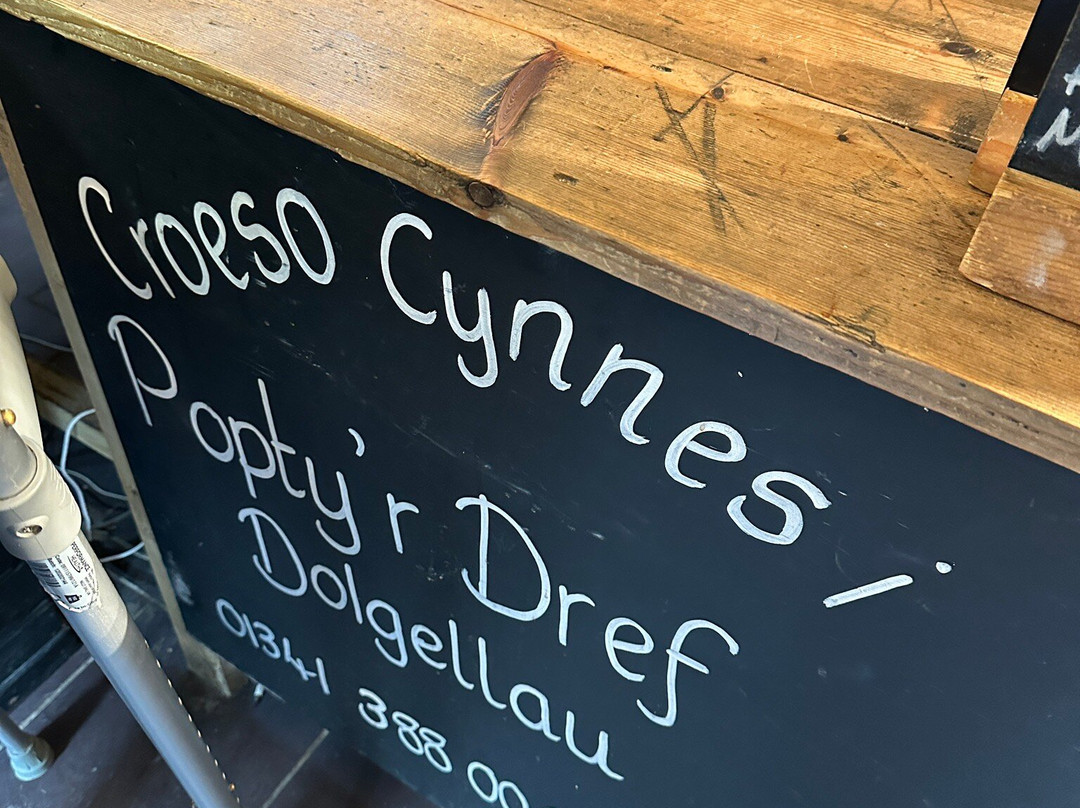 Croeso Cynnes!
Popty'r Dref
Dolgellau
01341 388 00